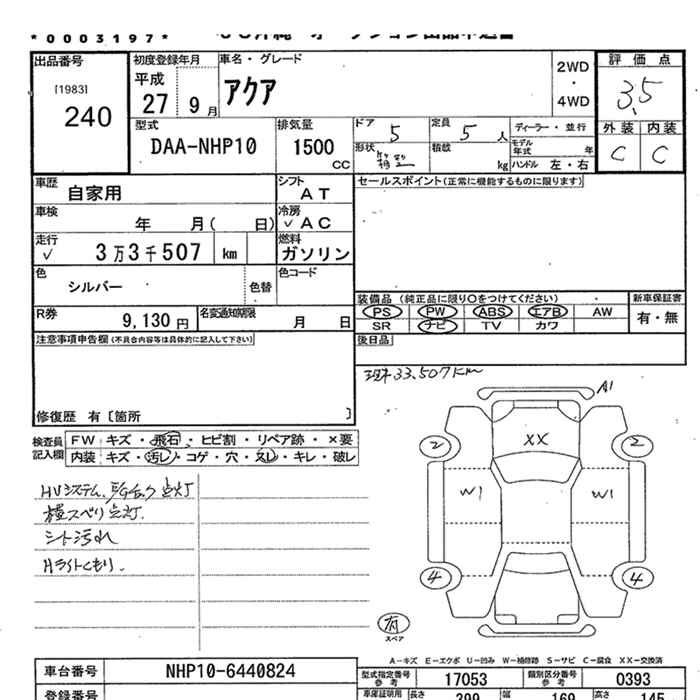 *0003197*
出品番号
[1983]
240
初度登録年月
平成
27 9月
車名・グレード
アクア
2WD
・
4WD
評価点
3.5
外装 内装
C C
型式
DAA-NHP10
排気量
1500
CC
ドア 5
定員 5人
ディーラー・並行
形状
積載
kg
モデル年式 年
ハンドル 左・右
車歴
自家用
シフト
AT
セールスポイント(正常に機能するものに限ります)
車検
年 月( 日)
冷房
✓AC
走行
✓ 3万3千507 km
燃料
ガソリン
色
シルバー
色替
色コード
装備品 (純正品に限り○をつけてください)
新車保証書
PS PW ABS エアB AW
有・無
SR ナビ TV カワ
R券
9,130円
名変通知期限
月 日
後日品
注意事項申告欄(不具合内容等は具体的に記入して下さい)
修復歴 有〔箇所 〕
現車33,507km
検査員記入欄
FW キズ・飛石・ヒビ割・リペア跡・×要
内装 キズ・汚レ・コゲ・穴・スレ・キレ・破レ
点灯
横スベリ点灯.
シート汚れ
Hライトくもり.
A1
2 XX 2
W1 W1
4 4
有
スペア
A-キズ E-エクボ U-凹み W-補修跡 S-サビ C-腐食 XX-交換済
車台番号
NHP10-6440824
型式指定番号
参考
17053
類別区分番号
参考
0393
登録番号
車庫証明用
長さ 399
幅 169
高さ 145